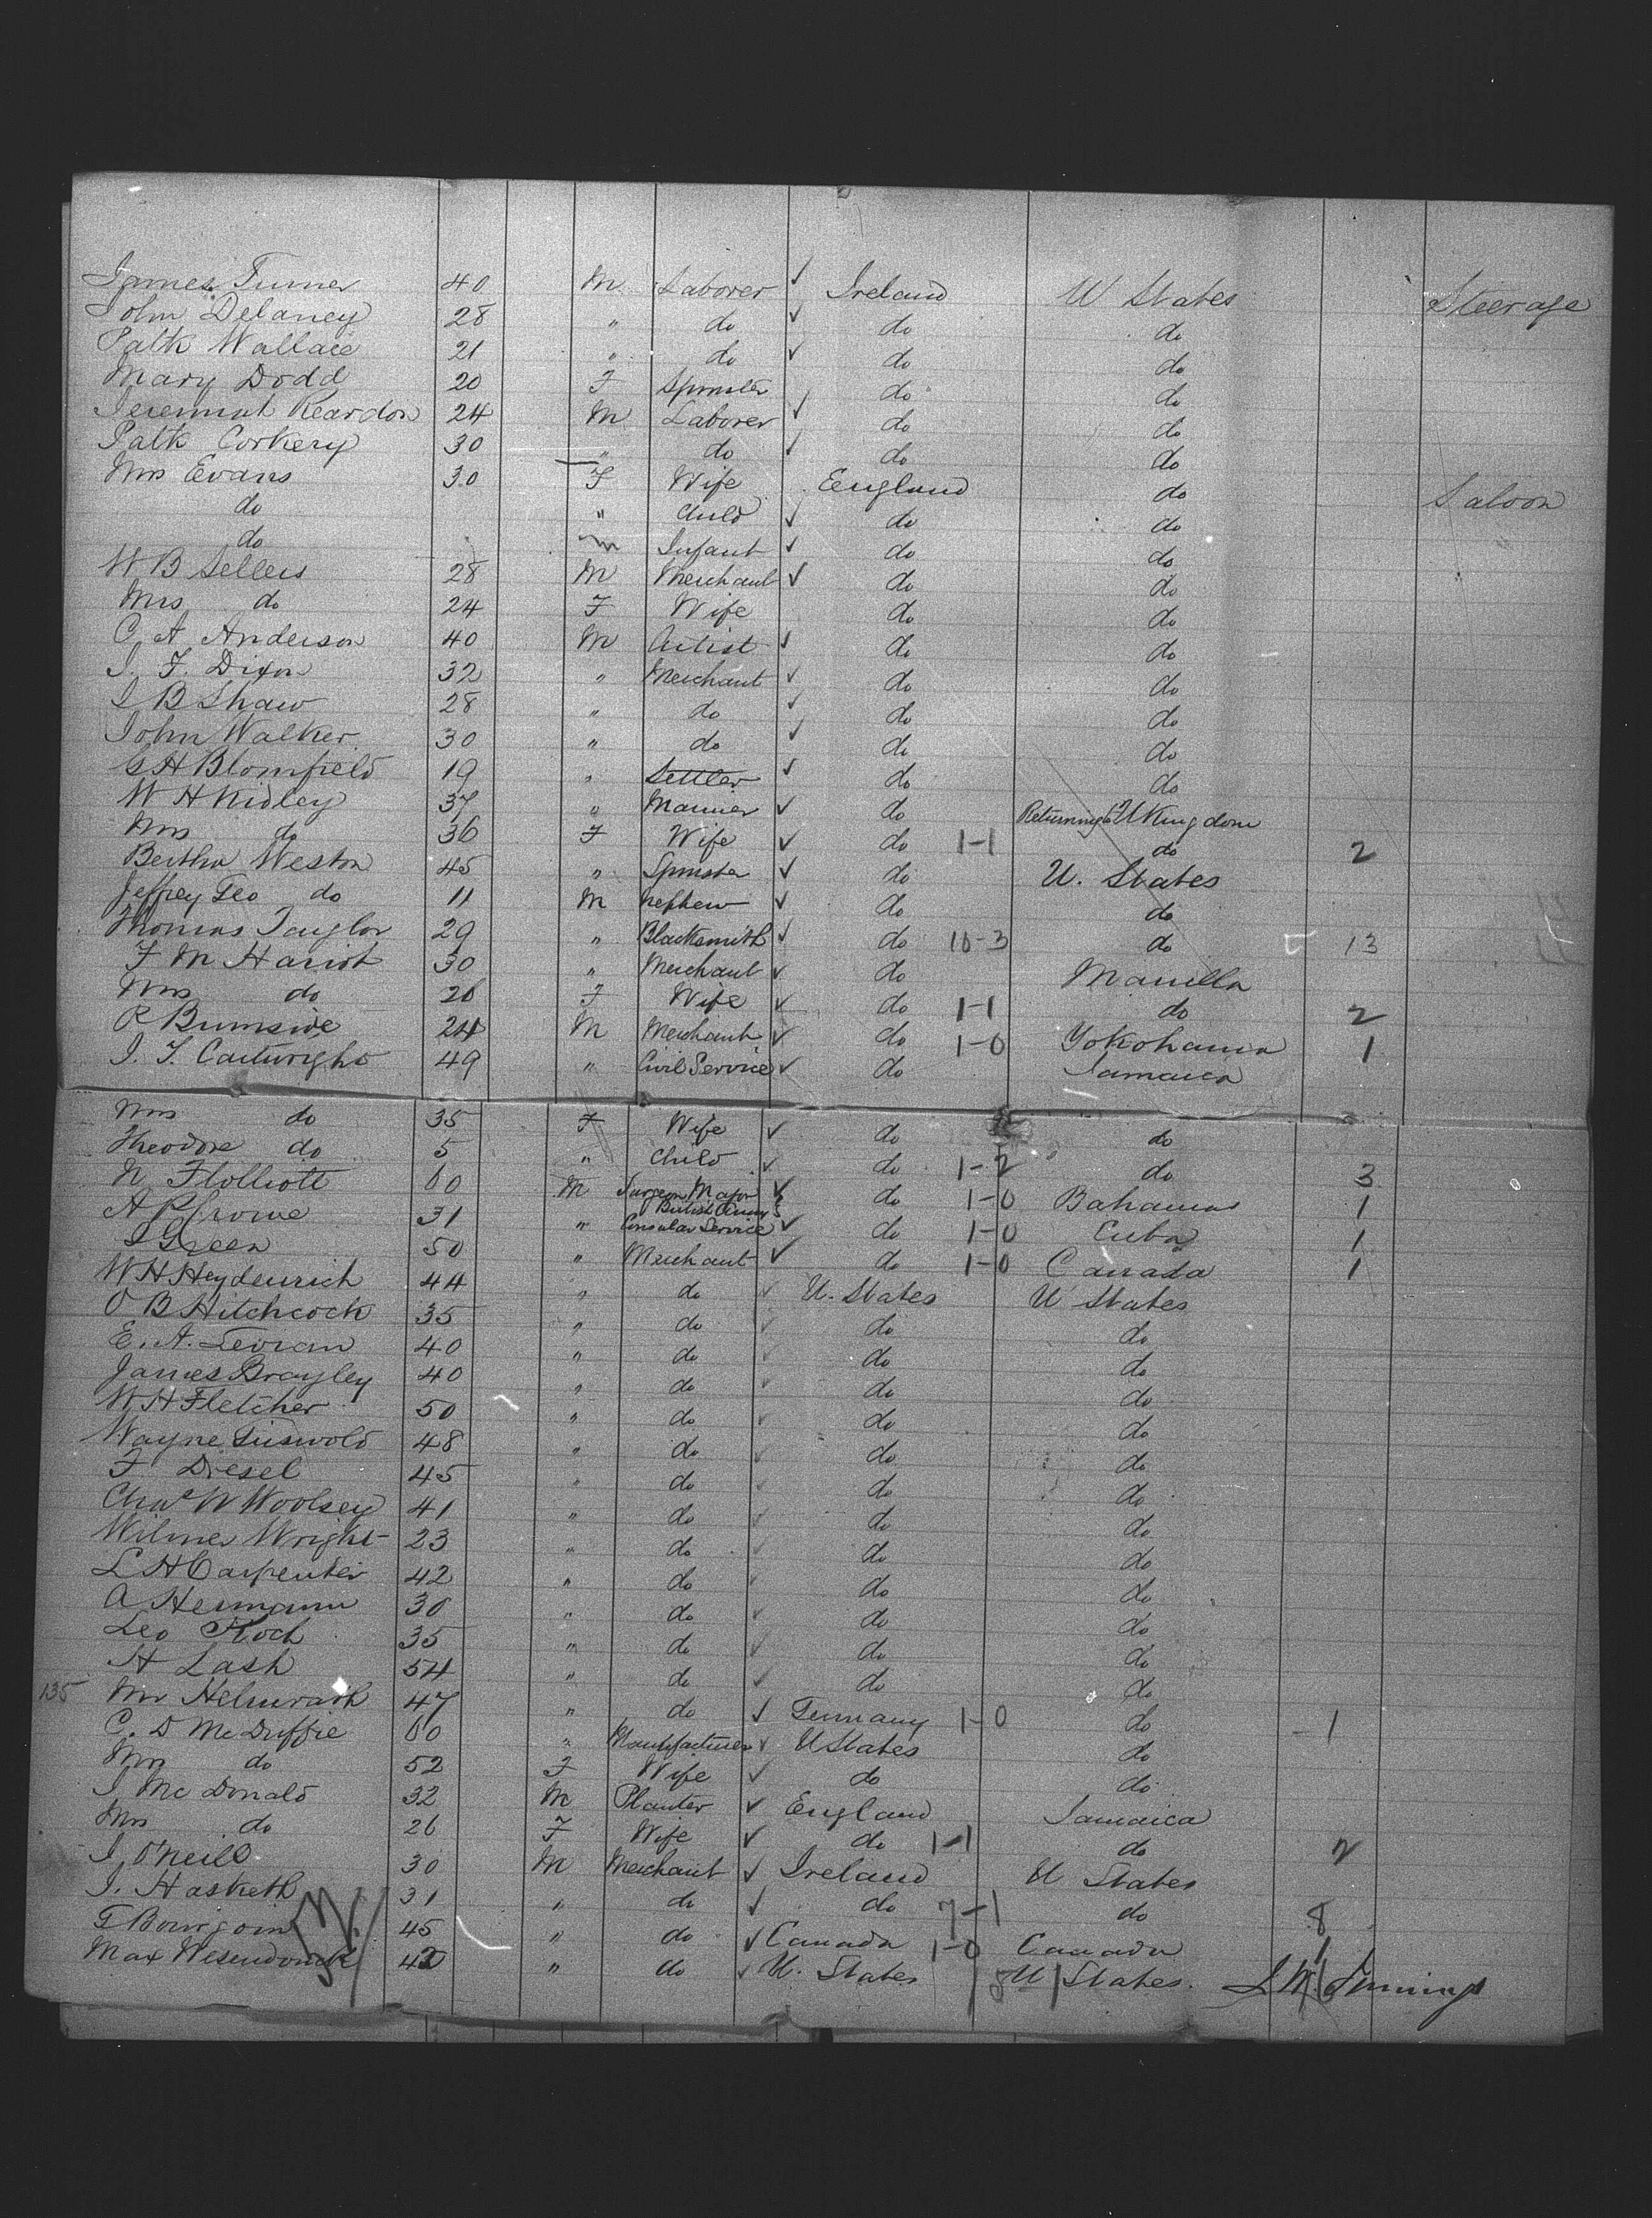 James Turner 40 M. Laborer ✓ Ireland U States Steerage
John Delaney 28 " do ✓ do do
Patk Wallace 21 " do ✓ do do
Mary Dodd 20 F Spinster do do
Jeremiah Reardon 24 M Laborer ✓ do do
Patk Corkery 30 " do ✓ do do
Mrs Evans 30 F Wife England do Saloon
do " Child ✓ do do
do m Infant ✓ do do
W B Sellers 28 M Merchant ✓ do do
Mrs do 24 F Wife do do
C. A. Anderson 40 M Artist ✓ do do
J. F. Dixon 32 " Merchant ✓ do do
J B Shaw 28 " do ✓ do do
John Walker 30 " do ✓ do do
G H Blomfield 19 " Settler ✓ do do
W H Ridley 37 " Mariner ✓ do Returning to U Kingdom
Mrs do 36 F Wife ✓ do 1-1 do 2
Bertha Weston 45 " Spinster ✓ do U. States
Jeffrey Geo do 11 M Nephew ✓ do do
Thomas Taylor 29 " Blacksmith ✓ do 10-3 do 13
F M Hariot 30 " Merchant ✓ do Manilla
Mrs do 26 F Wife ✓ do 1-1 do 2
R Burnside 24 M Merchant ✓ do 1-0 Yokohama 1
J. T. Cartwright 49 " Civil Service ✓ do Jamaica
Mrs do 35 F Wife ✓ do do
Theodore do 5 " Child ✓ do 1-2 do 3
N Ffolliott 60 M Surgeon Major British Army ✓ do 1-0 Bahamas 1
A P Crowe 31 " Consular Service ✓ do 1-0 Cuba 1
S Green 50 " Merchant ✓ do 1-0 Canada 1
W H Heydenrich 44 " do ✓ U. States U States
O B Hitchcock 35 " do ✓ do do
E. A. 40 " do ✓ do do
James Brayley 40 " do ✓ do do
W H Fletcher 50 " do ✓ do do
Wayne Griswold 48 " do ✓ do do
F Diesel 45 " do ✓ do do
Chas W Woolsey 41 " do ✓ do do
Wilmer Wright 23 " do ✓ do do
L H Carpenter 42 " do ✓ do do
A Hermann 30 " do ✓ do do
Leo Koch 35 " do ✓ do do
H Lash 54 " do ✓ do do
135 Mr Helmrath 47 " do ✓ Germany 1-0 do -1
C. D McDuffie 60 " Manufacturer ✓ U States do
Mrs do 52 F Wife ✓ do do
J McDonald 32 M Planter ✓ England Jamaica
Mrs do 26 F Wife ✓ do 1-1 do 2
J O'Neill 30 M Merchant ✓ Ireland U States
J. Hasketh 31 " do ✓ do 7-1 do 8
T Bourgoin 45 " do ✓ Canada 1-0 Canada 1
Max Wesendonck 42 " do ✓ U. States U States.